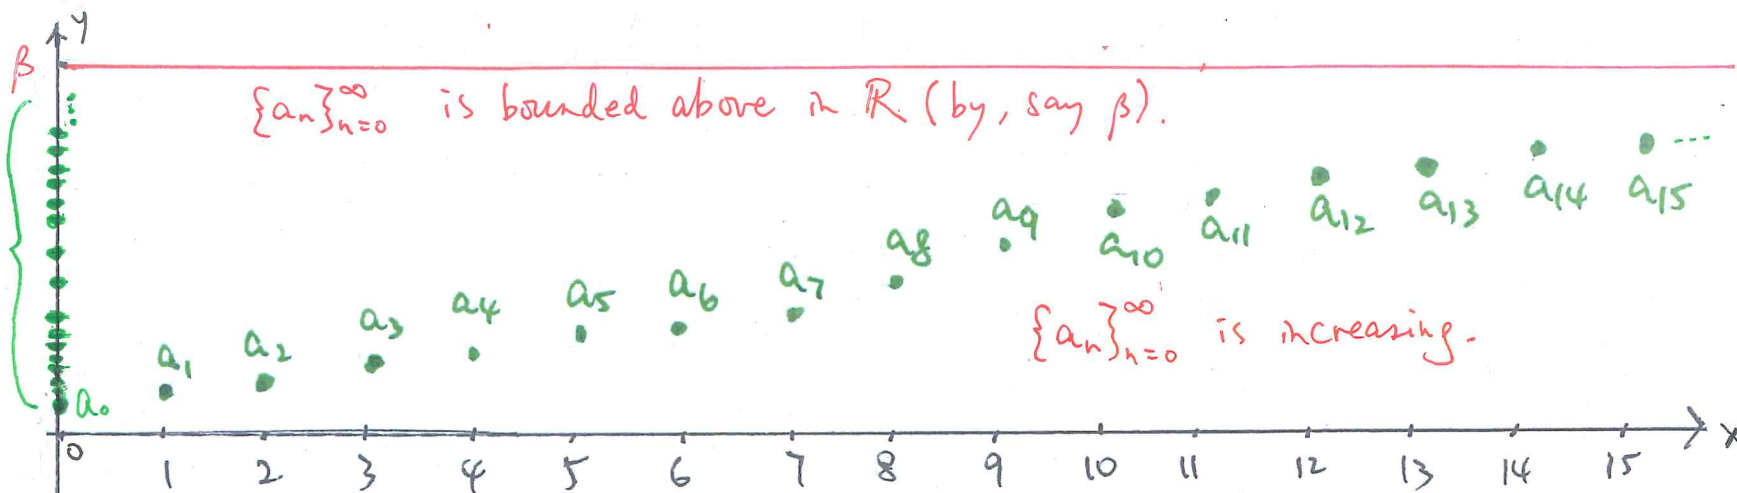 y
β
{aₙ}ₙ₌₀^∞ is bounded above in ℝ (by, say β).
a₀ a₁ a₂ a₃ a₄ a₅ a₆ a₇ a₈ a₉ a₁₀ a₁₁ a₁₂ a₁₃ a₁₄ a₁₅ ...
{aₙ}ₙ₌₀^∞ is increasing.
0 1 2 3 4 5 6 7 8 9 10 11 12 13 14 15 x